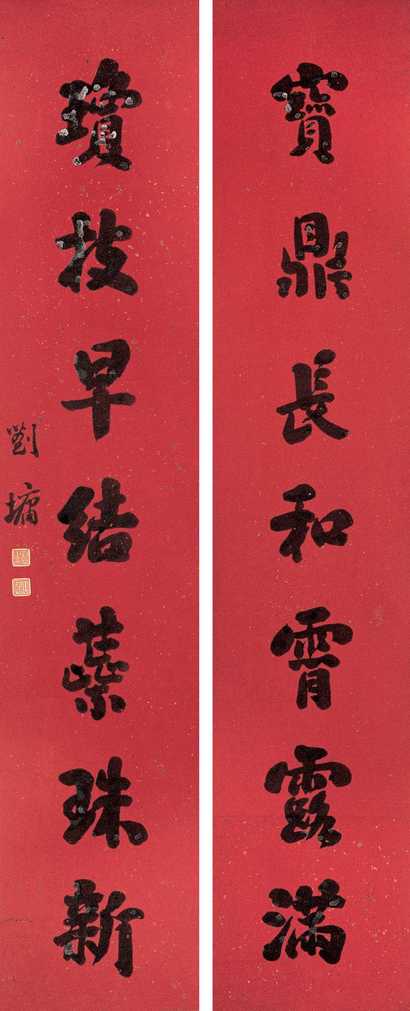 寶鼎長和霄露滿
瓊枝早結蘂珠新
劉墉